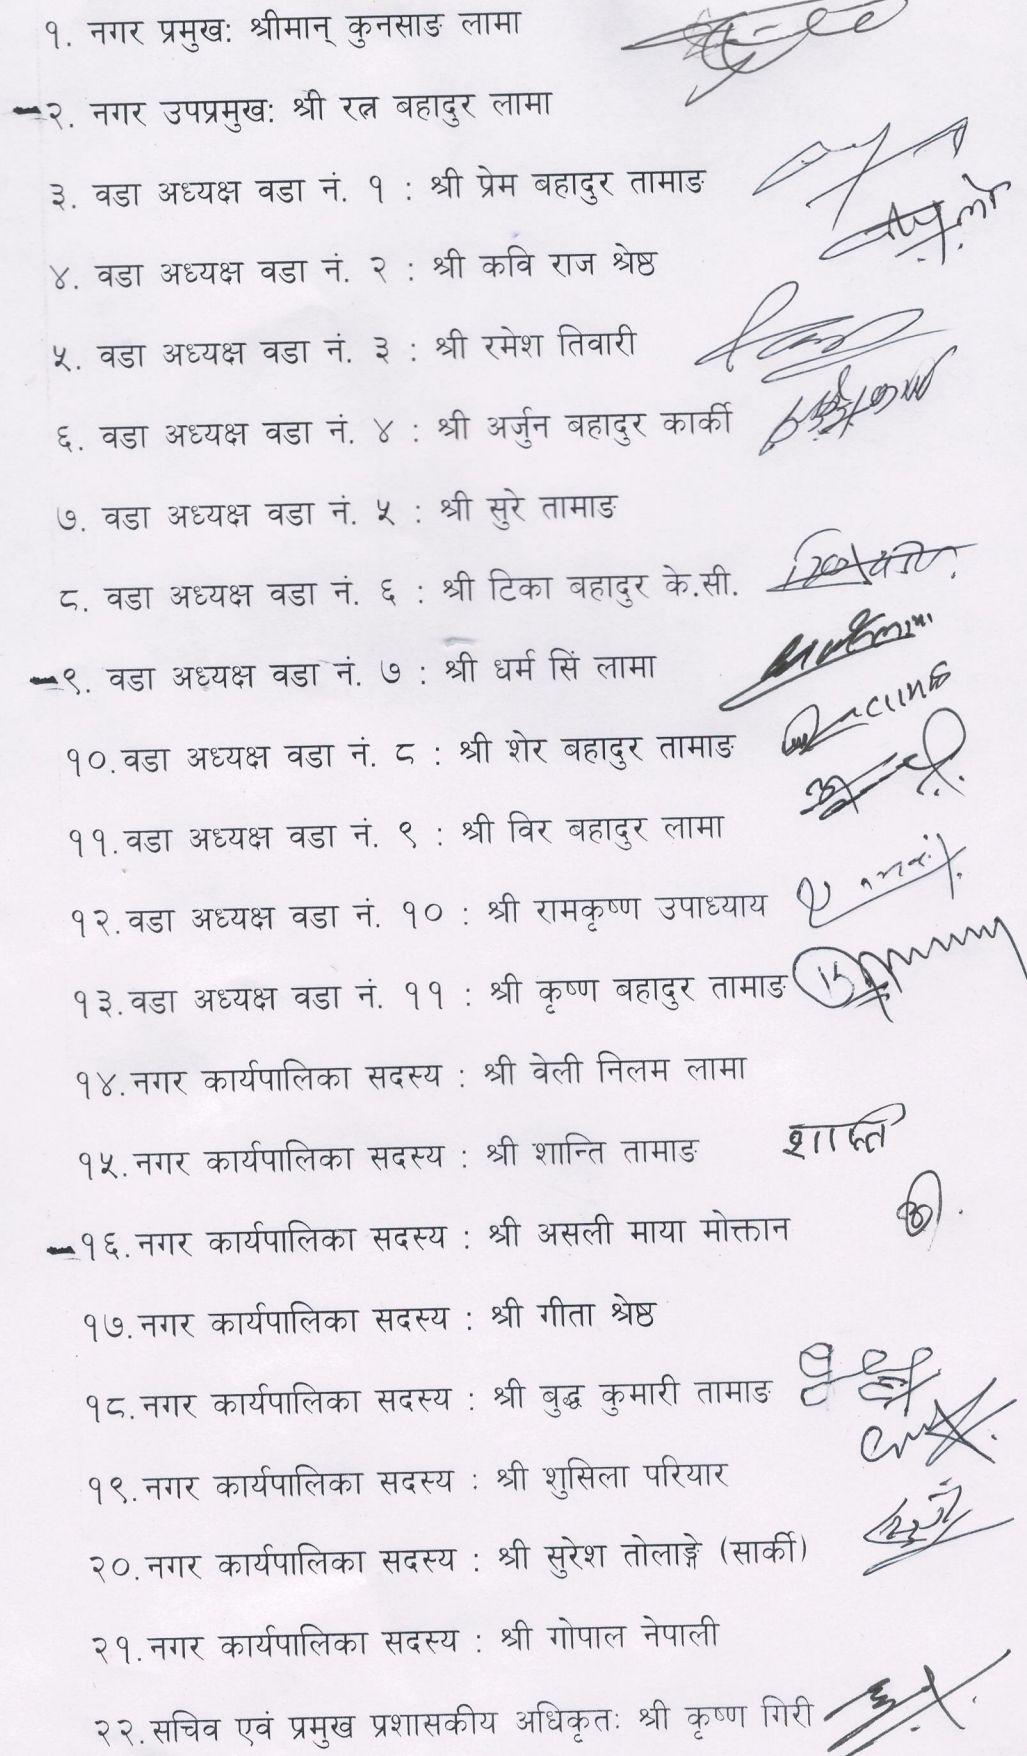 १. नगर प्रमुख: श्रीमान् कुनसाङ लामा
२. नगर उपप्रमुख: श्री रत्न बहादुर लामा
३. वडा अध्यक्ष वडा नं. १ : श्री प्रेम बहादुर तामाङ
४. वडा अध्यक्ष वडा नं. २ : श्री कवि राज श्रेष्ठ
५. वडा अध्यक्ष वडा नं. ३ : श्री रमेश तिवारी
६. वडा अध्यक्ष वडा नं. ४ : श्री अर्जुन बहादुर कार्की
७. वडा अध्यक्ष वडा नं. ५ : श्री सुरे तामाङ
८. वडा अध्यक्ष वडा नं. ६ : श्री टिका बहादुर के.सी.
९. वडा अध्यक्ष वडा नं. ७ : श्री धर्म सिं लामा
१०. वडा अध्यक्ष वडा नं. ८ : श्री शेर बहादुर तामाङ
११. वडा अध्यक्ष वडा नं. ९ : श्री विर बहादुर लामा
१२. वडा अध्यक्ष वडा नं. १० : श्री रामकृष्ण उपाध्याय
१३. वडा अध्यक्ष वडा नं. ११ : श्री कृष्ण बहादुर तामाङ
१४. नगर कार्यपालिका सदस्य : श्री वेली निलम लामा
१५. नगर कार्यपालिका सदस्य : श्री शान्ति तामाङ शान्ति
१६. नगर कार्यपालिका सदस्य : श्री असली माया मोक्तान
१७. नगर कार्यपालिका सदस्य : श्री गीता श्रेष्ठ
१८. नगर कार्यपालिका सदस्य : श्री बुद्ध कुमारी तामाङ
१९. नगर कार्यपालिका सदस्य : श्री शुसिला परियार
२०. नगर कार्यपालिका सदस्य : श्री सुरेश तोलाङ्गे (सार्की)
२१. नगर कार्यपालिका सदस्य : श्री गोपाल नेपाली
२२. सचिव एवं प्रमुख प्रशासकीय अधिकृतः श्री कृष्ण गिरी